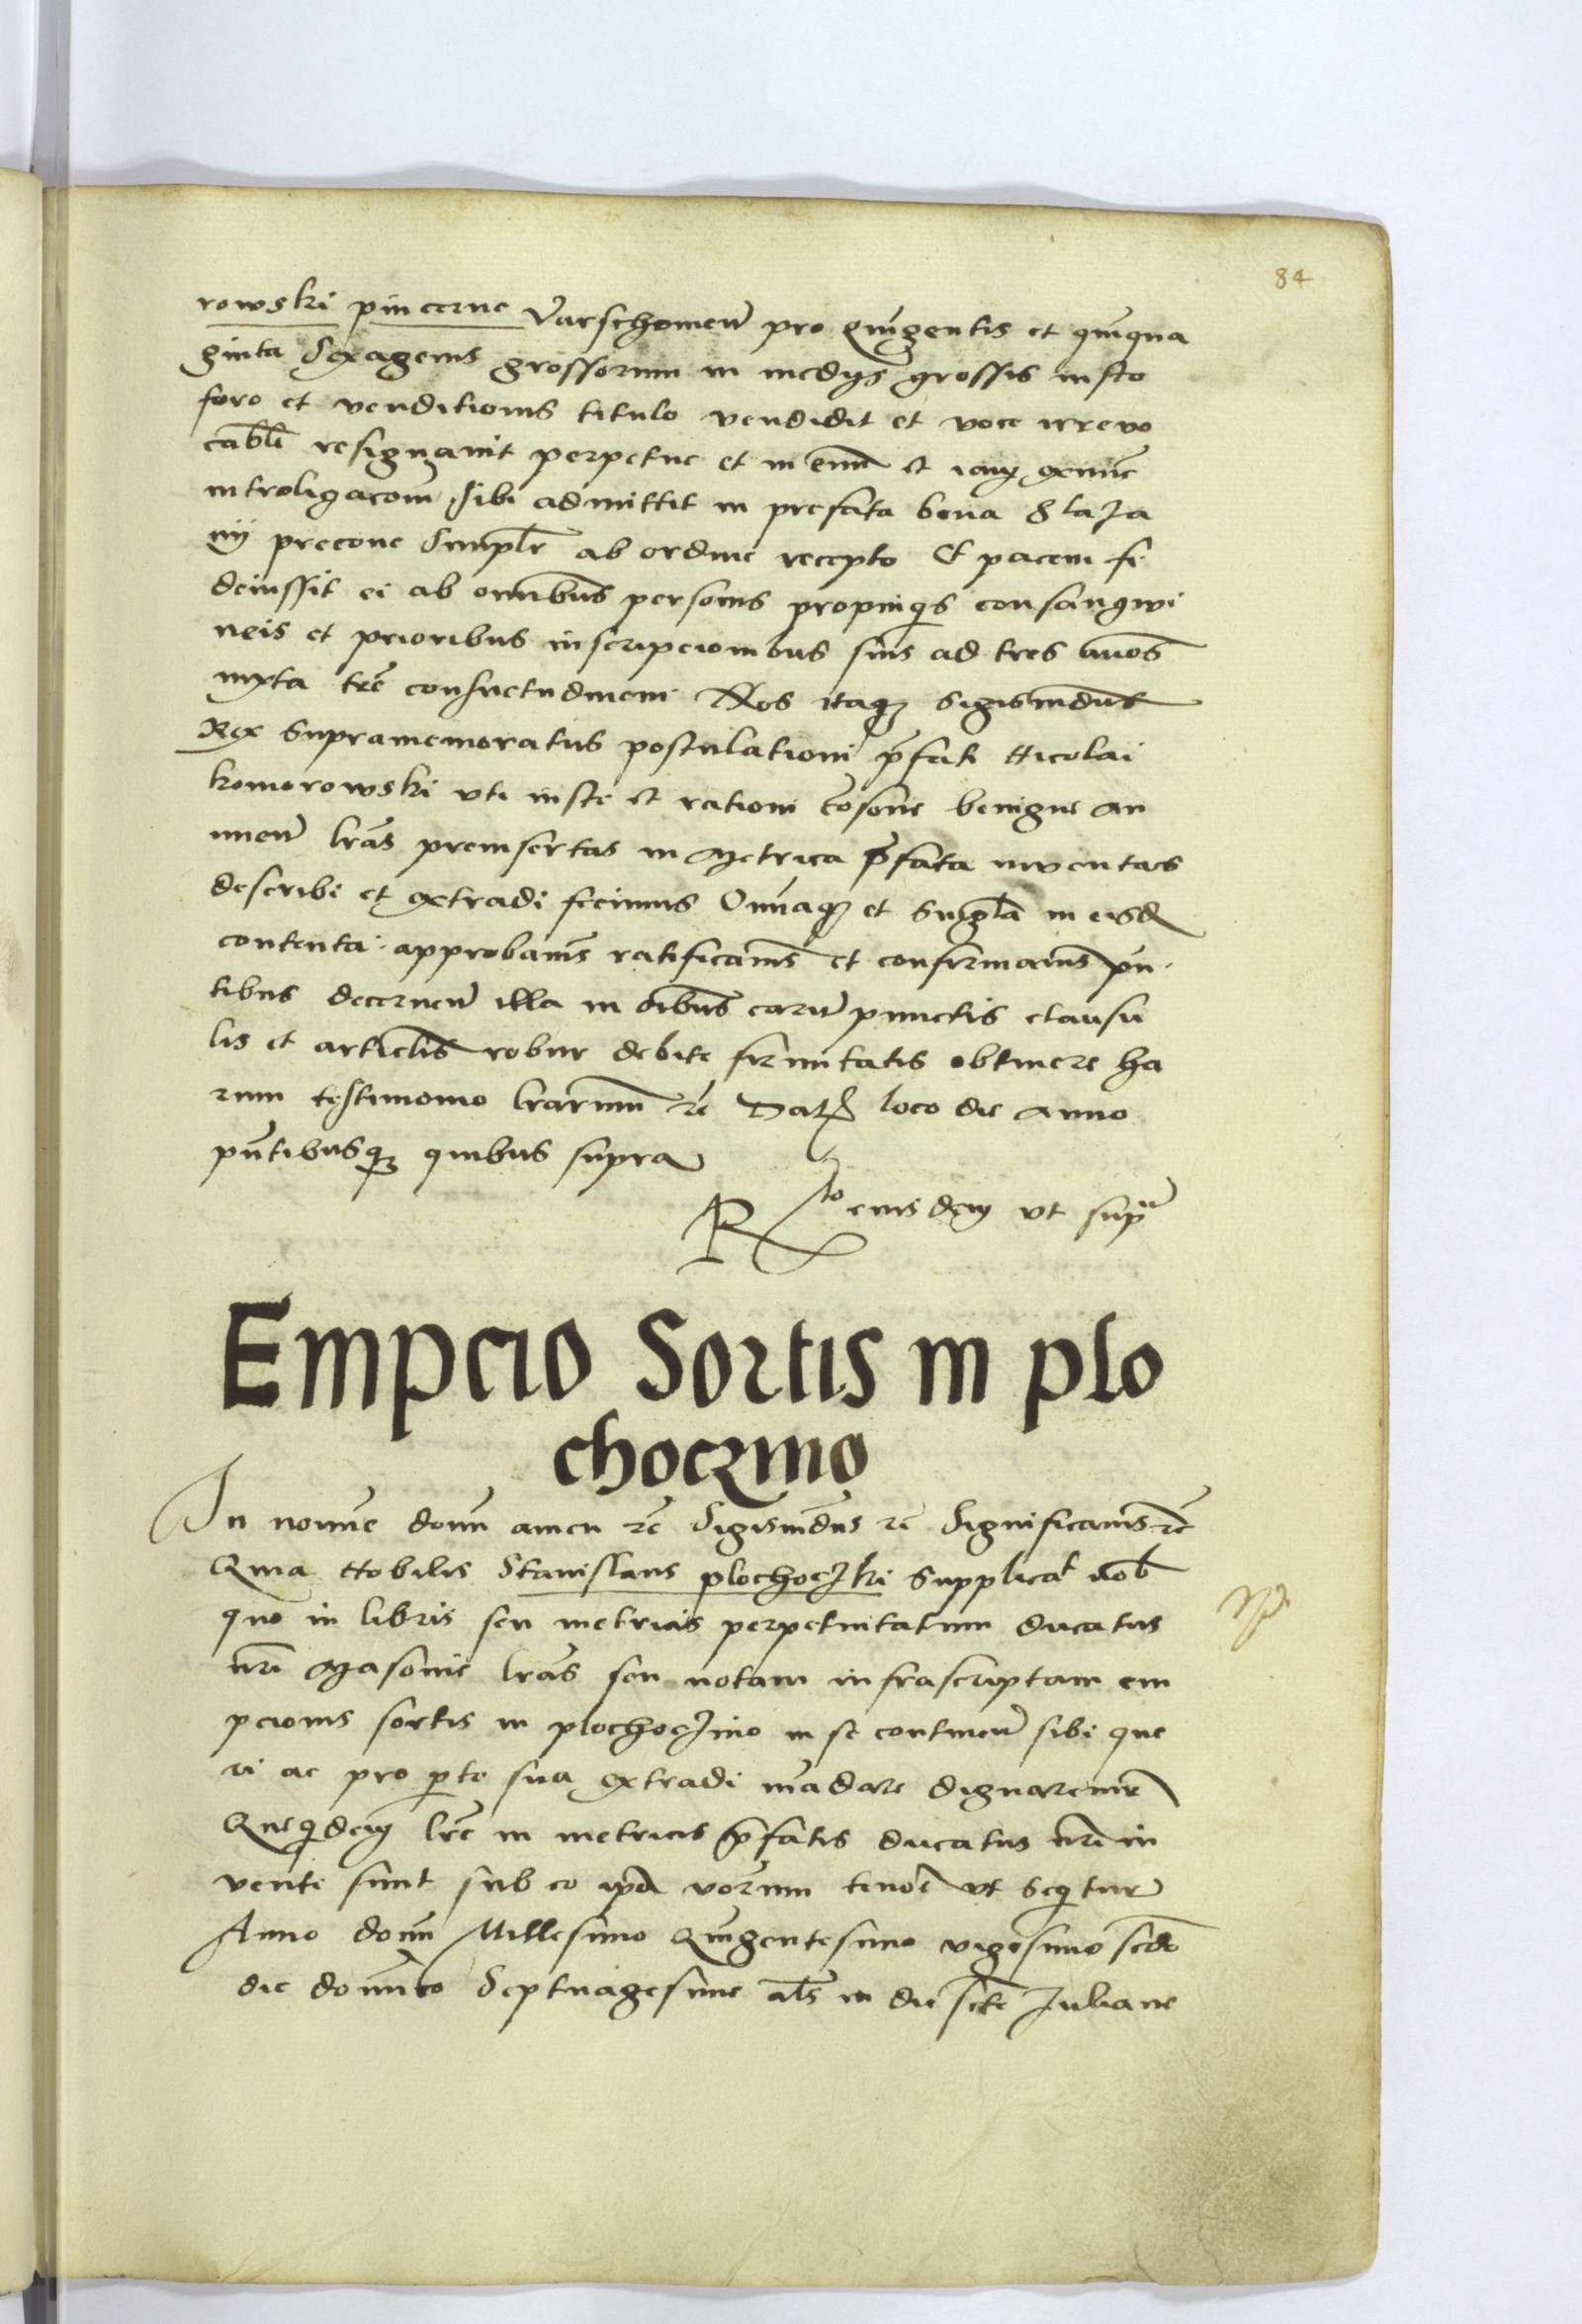 84
rowski pincerne Varschovien̄ pro quīgentis et quīqua
ginta Sexagenis grossorum in medys grossis insto
foro et venditionis titulo vendidit et voce irrevo
cabl̄r resignavit perpetue et in exnūc
introligacōm sibi admittit in prefata bona
precone Simplr̄ ab ordine recepto Et pacem fi
deiussit ei ab omībus personis propinqis consangwi
neis et prioribus inscripcionibus suis ad tres annos
iuxta trē consuetudinem Nos itaqȝ Sigismūdus
Rex Supramemoratus postulationi p̄fati Nicolai
komorowski uti iuste et rationi cōsone benigne an
nuen̄ lrās preinsertas in Metrica p̄fata inventas
describi et extradi fecimus Omniaqȝ et Singl̄a in eisd
contenta approbamꝰ ratificamꝰ et confirmamꝰ pn̄
tibus decernen̄ illa in oībus earū punctis clausu
lis et articl̄is robur debite firmitatis obtinere ha
rum testimonio lrārum rē Dat loco die anno
pn̄tibusqȝ quibus supra
Rto eiusdem ut supra
Empcio Sortis in plo
choczino
In nomīe domī amen rē Sigismūdus rē Significamꝰ rē
Quia Nobilis Stanislaus plochoczki Supplicat nob̄
quō in libris seu metricis perpetuitatum ducatus
nrī Masovie lrās seu notam infrascriptam em
pcionis sortis in plochoczino in se continen̄ sibi que
ri ac pro pte sua extradi mādare dignaremr̄
Quequidem lrē in metricis p̄fatis ducatus nrī in
vente sunt sub eo ipso verborum tenore ut sequitur
Anno domī Millesimo Quīgentesimo vigesimo scdo
die domīco Septuagesime als̄ in die scte Juliane